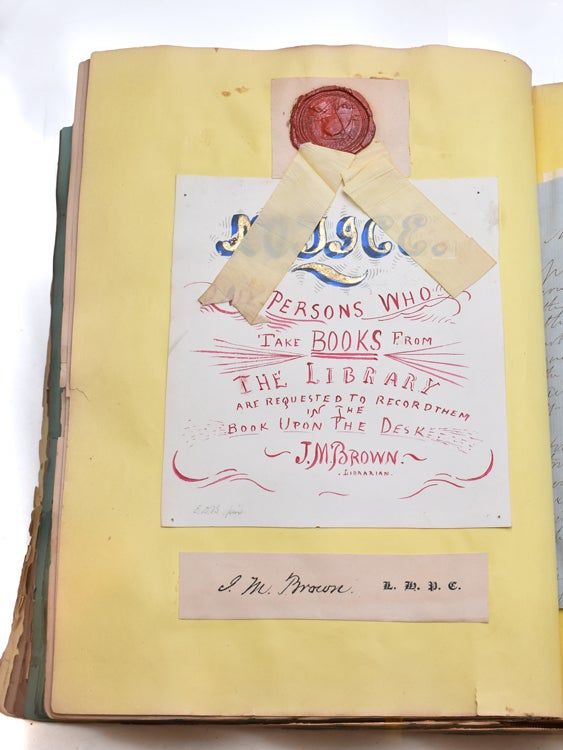 NOTICE.
PERSONS WHO
TAKE BOOKS FROM
THE LIBRARY
ARE REQUESTED TO RECORD THEM
IN THE
BOOK UPON THE DESK
J.M. BROWN.
LIBRARIAN.
J. M. Brown. L. H. P. C.